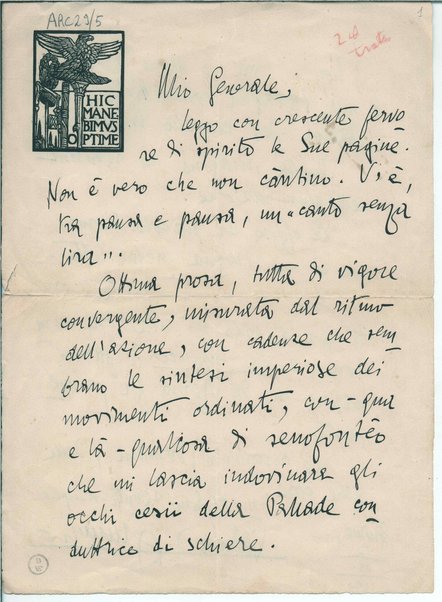 ARC29/5
1
2 cd
HIC
MANE
BIMVS
OPTIME
Mio Generale,
leggo con crescente fervo
re di spirito le Sue pagine.
Non è vero che non càntino. V'è,
tra pausa e pausa, un "canto senza
lira".
Ottima prosa, tutta di vigore
convergente, misurata dal ritmo
dell'azione, con cadenze che sem
brano le sintesi imperiose dei
movimenti ordinati, con - qua
e là - qualcosa di senofontèo
che mi lascia indovinare gli
occhi cesii della Pallade con
duttrice di schiere.